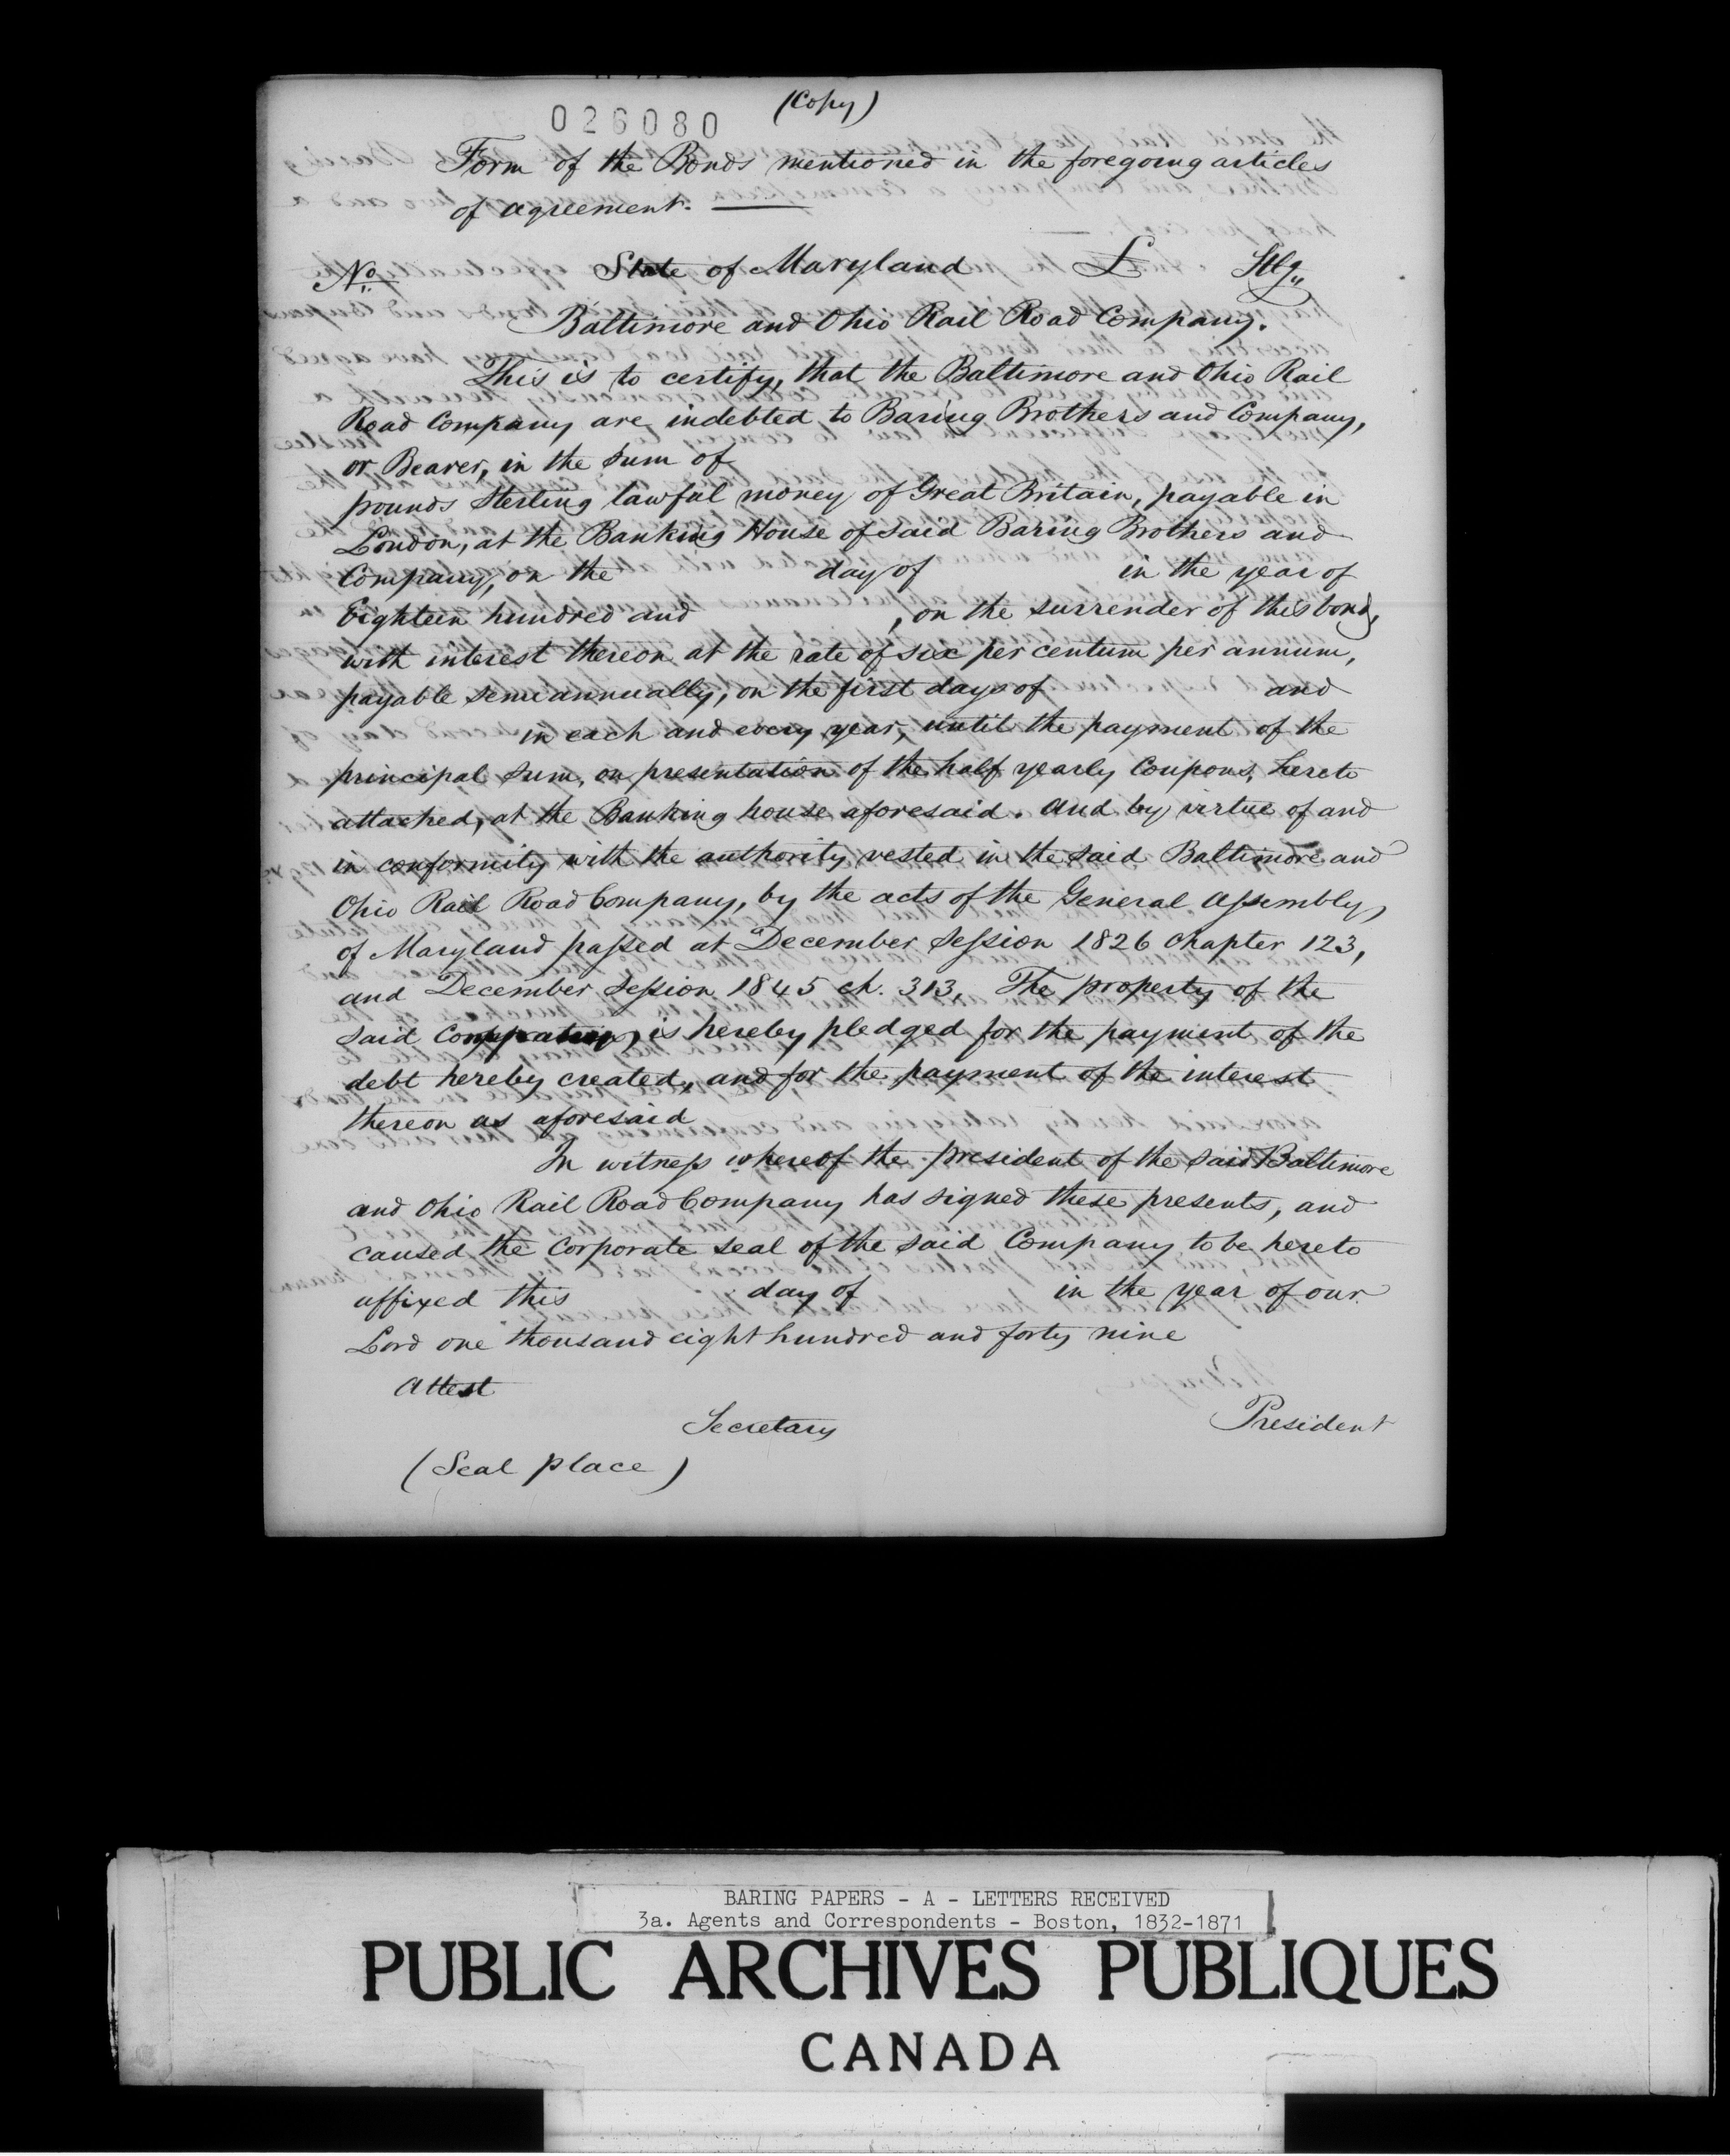 (Copy)
026080
Form of the Bonds mentioned in the foregoing articles
of agreement.
No. State of Maryland £ Stlg,,
Baltimore and Ohio Rail Road Company.
This is to certify, that the Baltimore and Ohio Rail
Road Company are indebted to Baring Brothers and Company,
or Bearer, in the sum of
pounds Sterling lawful money of Great Britain, payable in
London, at the Banking House of said Baring Brothers and
Company, on the day of in the year of
Eighteen hundred and , on the surrender of this bond,
with interest thereon at the rate of six per centum per annum,
payable semiannually, on the first days of and
in each and every year, until the payment of the
principal sum, on presentation of the half yearly Coupons, hereto
attached, at the Banking house aforesaid. And by virtue of and
in conformity with the authority vested in the said Baltimore and
Ohio Rail Road Company, by the acts of the General Assembly,
of Maryland passed at December Session 1826 Chapter 123,
and December Session 1845 ch. 313, The property of the
said is hereby pledged for the payment of the
debt hereby created, and for the payment of the interest
thereon as aforesaid
In witness whereof the president of the said Baltimore
and Ohio Rail Road Company has signed these presents, and
caused the Corporate seal of the said Company to be hereto
affixed this day of in the year of our
Lord one thousand eight hundred and forty nine
Attest
Secretary President
(Seal place)
BARING PAPERS - A - LETTERS RECEIVED
3a. Agents and Correspondents - Boston, 1832-1871
PUBLIC ARCHIVES PUBLIQUES
CANADA